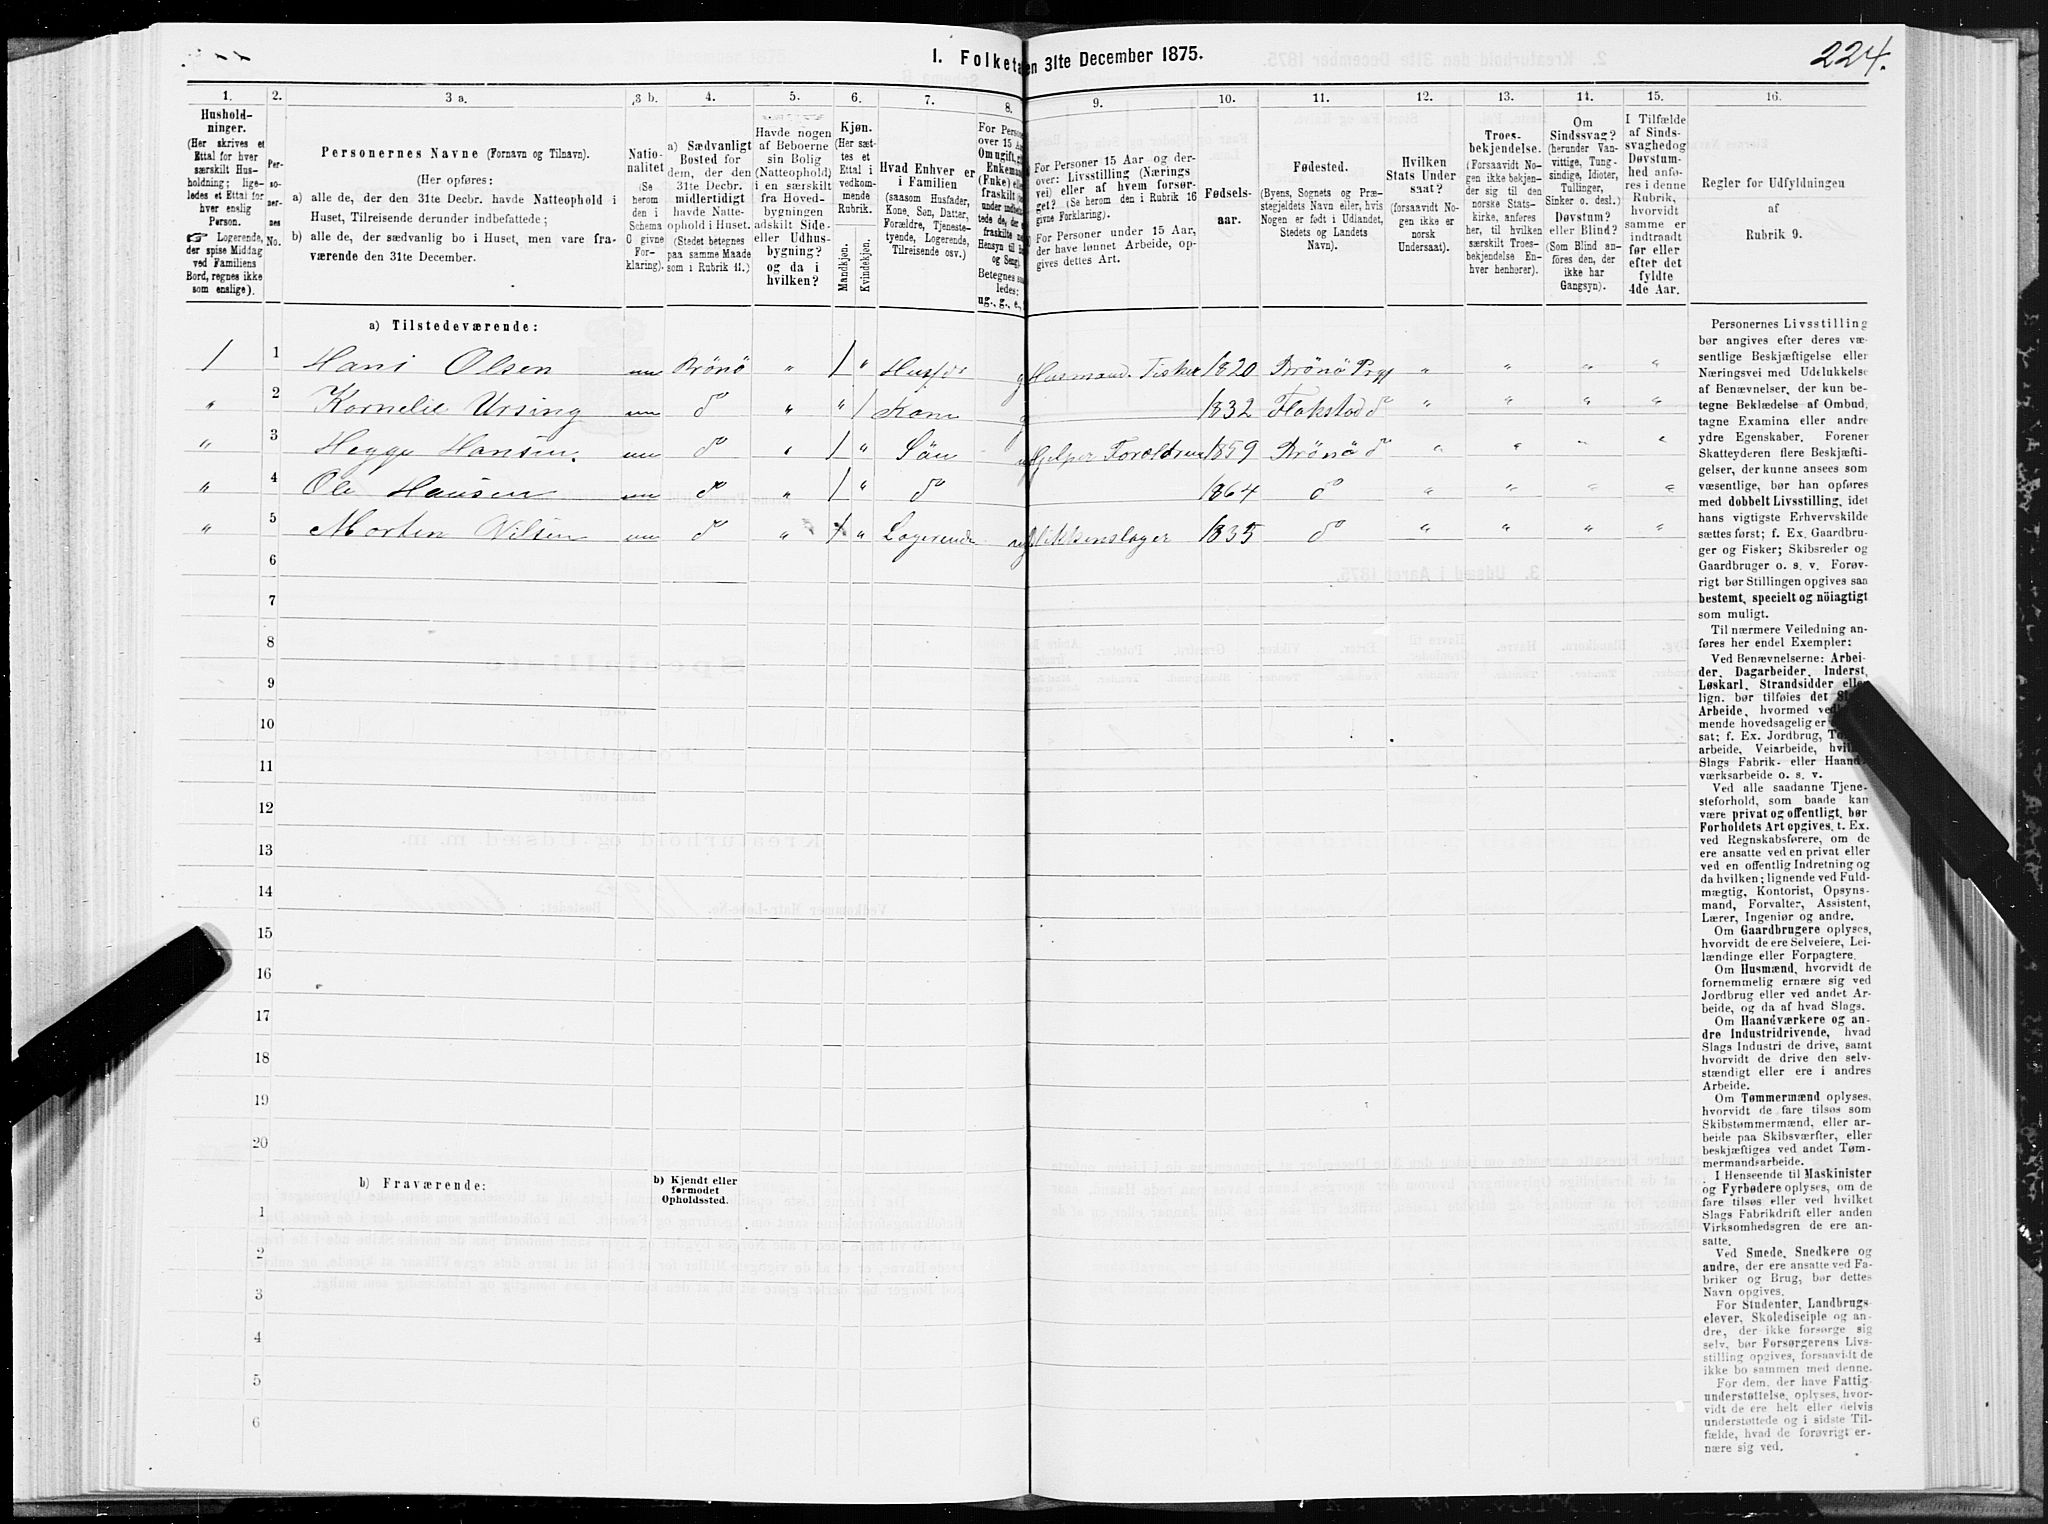 224.
1. Folketa en 31te December 1875.
1. 2. 3 a. 3 b. 4. 5. 6. 7. 8. 9. 10. 11. 12. 13. 14. 15. 16.
Husholdninger.
(Her skrives et Ettal for hver særskilt Husholdning; ligeledes et Ettal for hver enslig Person.
☞ Logerende, der spise Middag ved Familiens Bord, regnes ikke som enslige).
Personernes No.
Personernes Navne (Fornavn og Tilnavn).
(Her opføres:
a) alle de, der den 31te Decbr. havde Natteophold i Huset, Tilreisende derunder indbefattede;
b) alle de, der sædvanlig bo i Huset, men vare fraværende den 31te December.
Nationalitet (Se herom den i Schema C givne Forklaring).
a) Sædvanligt Bosted for dem, der den 31te Decbr. midlertidigt havde Natteophold i Huset. (Stedet betegnes paa samme Maade som i Rubrik 11.)
Havde nogen af Beboerne sin Bolig (Natteophold) i en særskilt fra Hovedbygningen adskilt Side- eller Udhusbygning? og da i hvilken?
Kjøn. (Her sættes et Ettal i vedkommende Rubrik.
Mandkjøn. Kvindekjøn.
Hvad Enhver er i Familien (saasom Husfader, Kone, Søn, Datter, Forældre, Tjenestetyende, Logerende, Tilreisende osv.)
For Person over 15 Aar Om ugift, Enkemand (Enke) eller fraskilt
Betegnes saaledes: ug., g., e.,
For Personer 15 Aar og derover: Livsstilling (Nærings vei) eller af hvem forsørget? (Se herom de i Rubrik 16 givne Forklaring).
For Personer under 15 Aar, der have lønnet Arbeide, opgives dettes Art.
Fødselsaar.
Fødested.
(Byens, Sognets og Præstegjeldets Navn eller, hvis Nogen er født i Udlandet, Stedets og Landets Navn).
Hvilken Stats Undersaat?
(forsaavidt Nogen ikke er norsk Undersaat).
Troesbekjendelse.
(Forsaavidt Nogen ikke bekjender sig til den norske Statskirke, anføres her, til hvilken særskilt Troesbekjendelse Enhver henhører).
Om Sindssvag? (herunder Vanvittige, Tungsindige, Idioter, Tullinger, Sinker o. desl.) Døvstum? eller Blind? (Som Blind anføres den, der ikke har Gangsyn).
I Tilfælde af Sindssvaghed og Døvstumhed anføres i denne Rubrik, hvorvidt samme er indtraadt før eller efter det fyldte 4de Aar.
Regler for Udfyldningen af Rubrik 9.
a) Tilstedeværende:
1 1 Hans Olsen nn Brönö " 1 " Husfar g Husmand. Fisker 1820 Brönö Prgj " " " "
" 2 Kornelie Ursing nn do " " 1 Kone g 1832 Flakstad do " " " "
" 3 Hegge Hansen. nn do " 1 " Sön Hjelper Foreldrene 1859 Brönö do " " " "
" 4 Ole Hansen nn do " 1 " do 1864 do " " " "
" 5 Morten Nilsen nn do " 1 " Logerende Blikkenslager 1835 do " " " "
6
7
8
9
10
11
12
13
14
15
16
17
18
19
20
b) Fraværende:
b) Kjendt eller formodet Opholdssted.
1
2
3
4
5
6
Personernes Livsstilling
bør angives efter deres væ-
sentlige Beskjæftigelse eller
Næringsvei med Udelukkelse
af Benævnelser, der kun be-
tegne Beklædelse af Ombud,
tagne Examina eller andre
ydre Egenskaber. Forener
Skatteyderen flere Beskjæfti-
gelser, der kunne ansees som
væsentlige, bør han opføres
med dobbelt Livsstilling, idet
hans vigtigste Erhvervskilde
sættes først; f. Ex. Gaardbru-
ger og Fisker; Skibsreder og
Gaardbruger o. s. v. Forøv-
rigt bør Stillingen opgives saa
bestemt, specielt og nöiagtigt
som muligt.
Til nærmere Veiledning an-
føres her endel Exempler:
Ved Benævnelserne: Arbei-
der, Dagarbeider, Inderst,
Løskarl, Strandsidder eller
lign. bør tilføies det
Arbeide, hvormed
mende hovedsagelig er
sat; f. Ex. Jordbrug,
arbeide, Veiarbeide,
Slags Fabrik- eller Haand-
værksarbeide o. s. v.
Ved alle saadanne Tjene-
steforhold, som baade kan
være privat og offentligt, bør
Forholdets Art opgives, t. Ex.
ved Regnskabsførere, om de
ere ansatte ved en privat eller
ved en offentlig Indretning og
da hvilken; lignende ved Fuld-
mægtig, Kontorist, Opsyns-
mand, Forvalter, Assistent,
Lærer, Ingeniør og andre.
Om Gaardbrugere oplyses,
hvorvidt de ere Selveiere, Lei-
lændinge eller Forpagtere.
Om Husmænd, hvorvidt de
fornemmelig ernære sig ved
Jordbrug eller ved andet Ar-
beide, og da af hvad Slags.
Om Haandværkere og an-
dre Industridrivende, hvad
Slags Industri de drive, samt
hvorvidt de drive den selv-
stændigt eller ere i andres
Arbeide.
Om Tømmermænd oplyses,
hvorvidt de fare tilsøs som
Skibstømmermænd, eller ar-
beide paa Skibsværfter, eller
beskjæftiges ved andet Tøm-
mermandsarbeide.
I Henseende til Maskinister
og Fyrbødere oplyses, om de
fare tilsøs eller ved hvilket
Slags Fabrikdrift eller anden
Virksomhedsgren de ere an-
satte.
Ved Smede, Snedkere og
andre, der ere ansatte ved Fa-
briker og Brug, bør dettes
Navn opgives.
For Studenter, Landbrugs-
elever, Skoledisciple og an-
dre, der ikke forsørge sig
selv, bør Forsørgerens Livs-
stilling opgives, forsaavidt de
ikke bo sammen med denne.
For dem, der have Fattig-
understøttelse, oplyses, hvor-
vidt de ere helt eller delvis
understøttede og i sidste Til-
fælde, hvad de forøvrigt er-
nære sig ved.